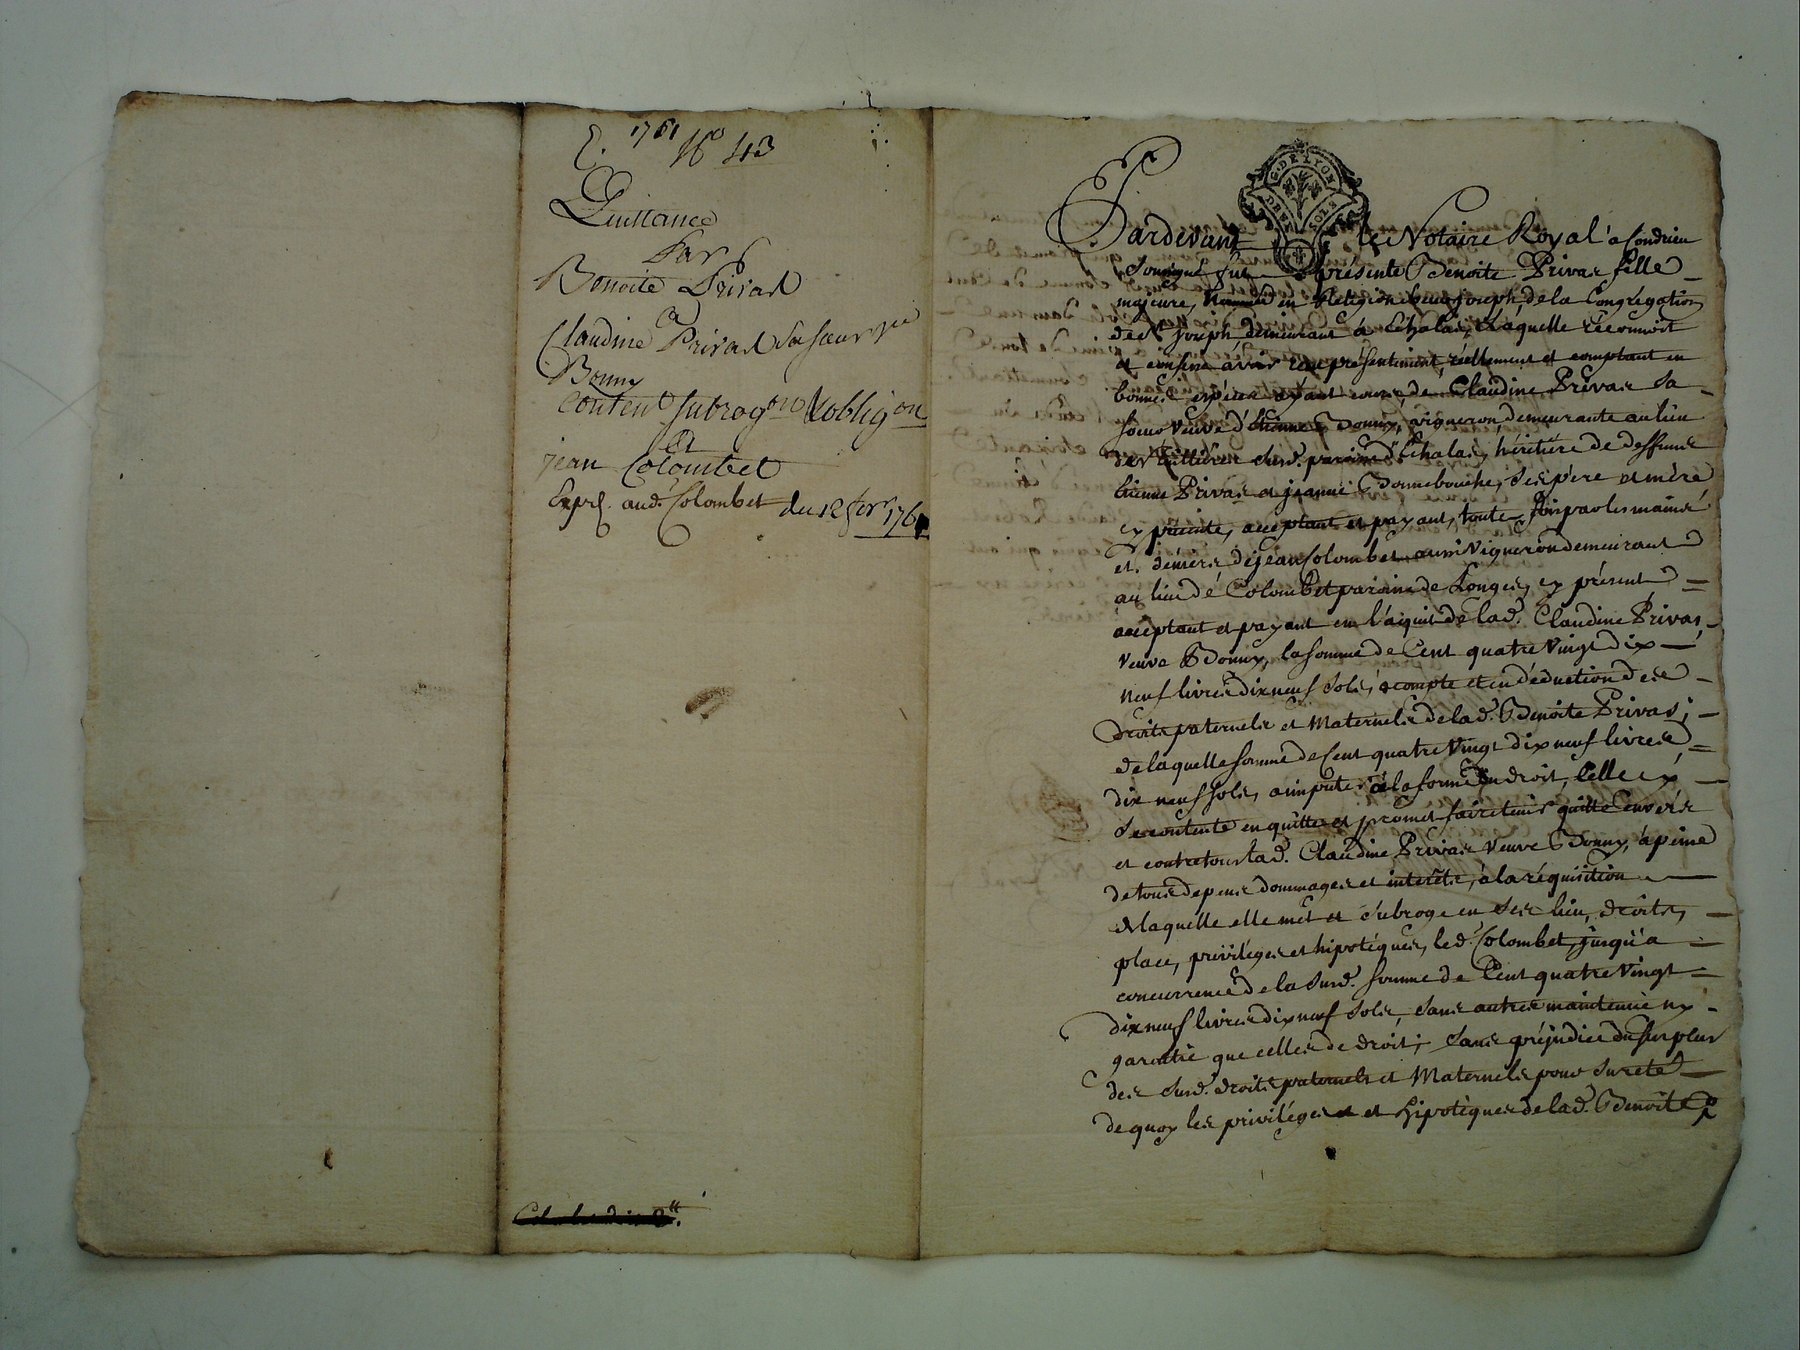 1761
E. N° 43
Quittance
Par
Benoite Privas
a
Claudine Privas sa sœur v.ve
Bonny
Conten.t subrog.on & oblig.on
et
jean Colombet
Exp.e aud. Colombet du 12 fevr 1761
G. DE LYON
DEUX SOLS
Pardevant le Notaire Royal a Condrieu
soussigné fut présente Benoite Privas fille
majeure, en Religion sœur joseph de la Congrégation
de St joseph demeurant à Echalas, Laquelle reconnoit
et confesse avoir reçu présentement, réellement et comptant en
bonnes espèces ayant cours, de Claudine Privas sa
sœur veuve d'étienne Bonny, vigneron, demeurante au lieu
des susd. paroisse d'Echalas, héritiere de deffunts
étienne Privas et jeanne Bonnebouche, ses père et mère
cy présente, acceptant et payant, toute fois par les mains
et deniers de jean Colombet aussi vigneron demeurant
au lieu de Colombet paroisse de Longes, cy présent
acceptant et payant en l'aquit de lad. Claudine Privas
veuve Bonny, la somme de Cent quatre vingt dix
neuf livres dix neuf sols, a compte et en déduction des
droits paternels et Maternels de lad. Benoite Privas;
de laquelle somme de Cent quatre vingt dix neuf livres
dix neuf sols, a imputer à la forme du droit, Celle cy
se contente en quitte et promet faire tenir quitte envers
et contre tous lad. Claudine Privas veuve Bonny, à peine
de tous depens dommages et interêts, à la réquisition
de laquelle elle met et subroge en ses lieu, droits,
place, privilèges et hipotéques, led. Colombet, jusqu'a
concurrence de la susd. somme de Cent quatre vingt
dix neuf livres dix neuf sols, sans autres maintenüe ny
garantie que celles de droit; sans préjudice du surplus
des susd. droits paternels et Maternels pour sureté
de quoy les privilèges et et hipotèques de lad. Benoite P